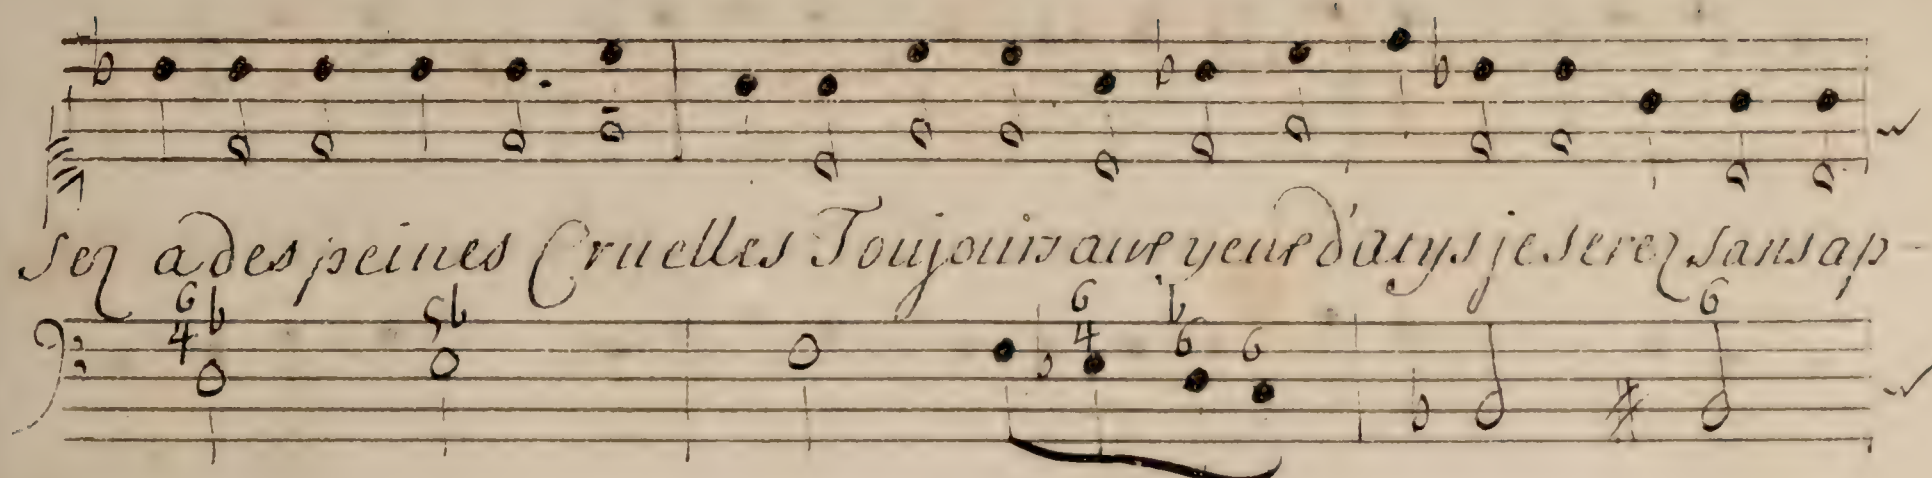 sez a des peines Cruelles Toujours aux yeux d'atys je serez sans ap-
6 b 5b 6 b 6
4 4 6 6